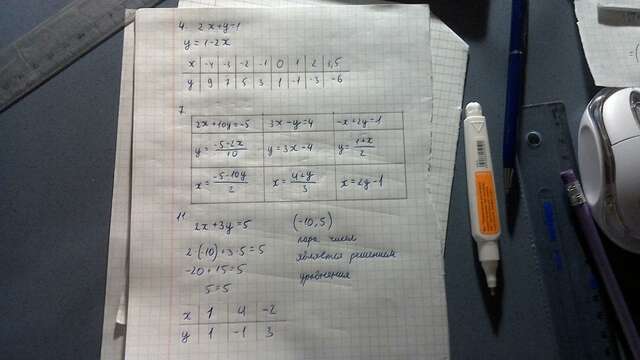 4. 2x+y=1
y=1-2x
x -4 -3 -2 -1 0 1 2 3,5
y 9 7 5 3 1 -1 -3 -6
7.
2x+10y=-5 3x-y=4 -x+2y=1
y=(-5-2x)/10 y=3x-4 y=(1+x)/2
x=(-5-10y)/2 x=(4+y)/3 x=2y-1
11
2x+3y=5 (-10,5)
пара чисел
2·(-10)+3·5=5 является решением
-20+15=5 уравнения
5=5
x 1 4 -2
y 1 -1 3